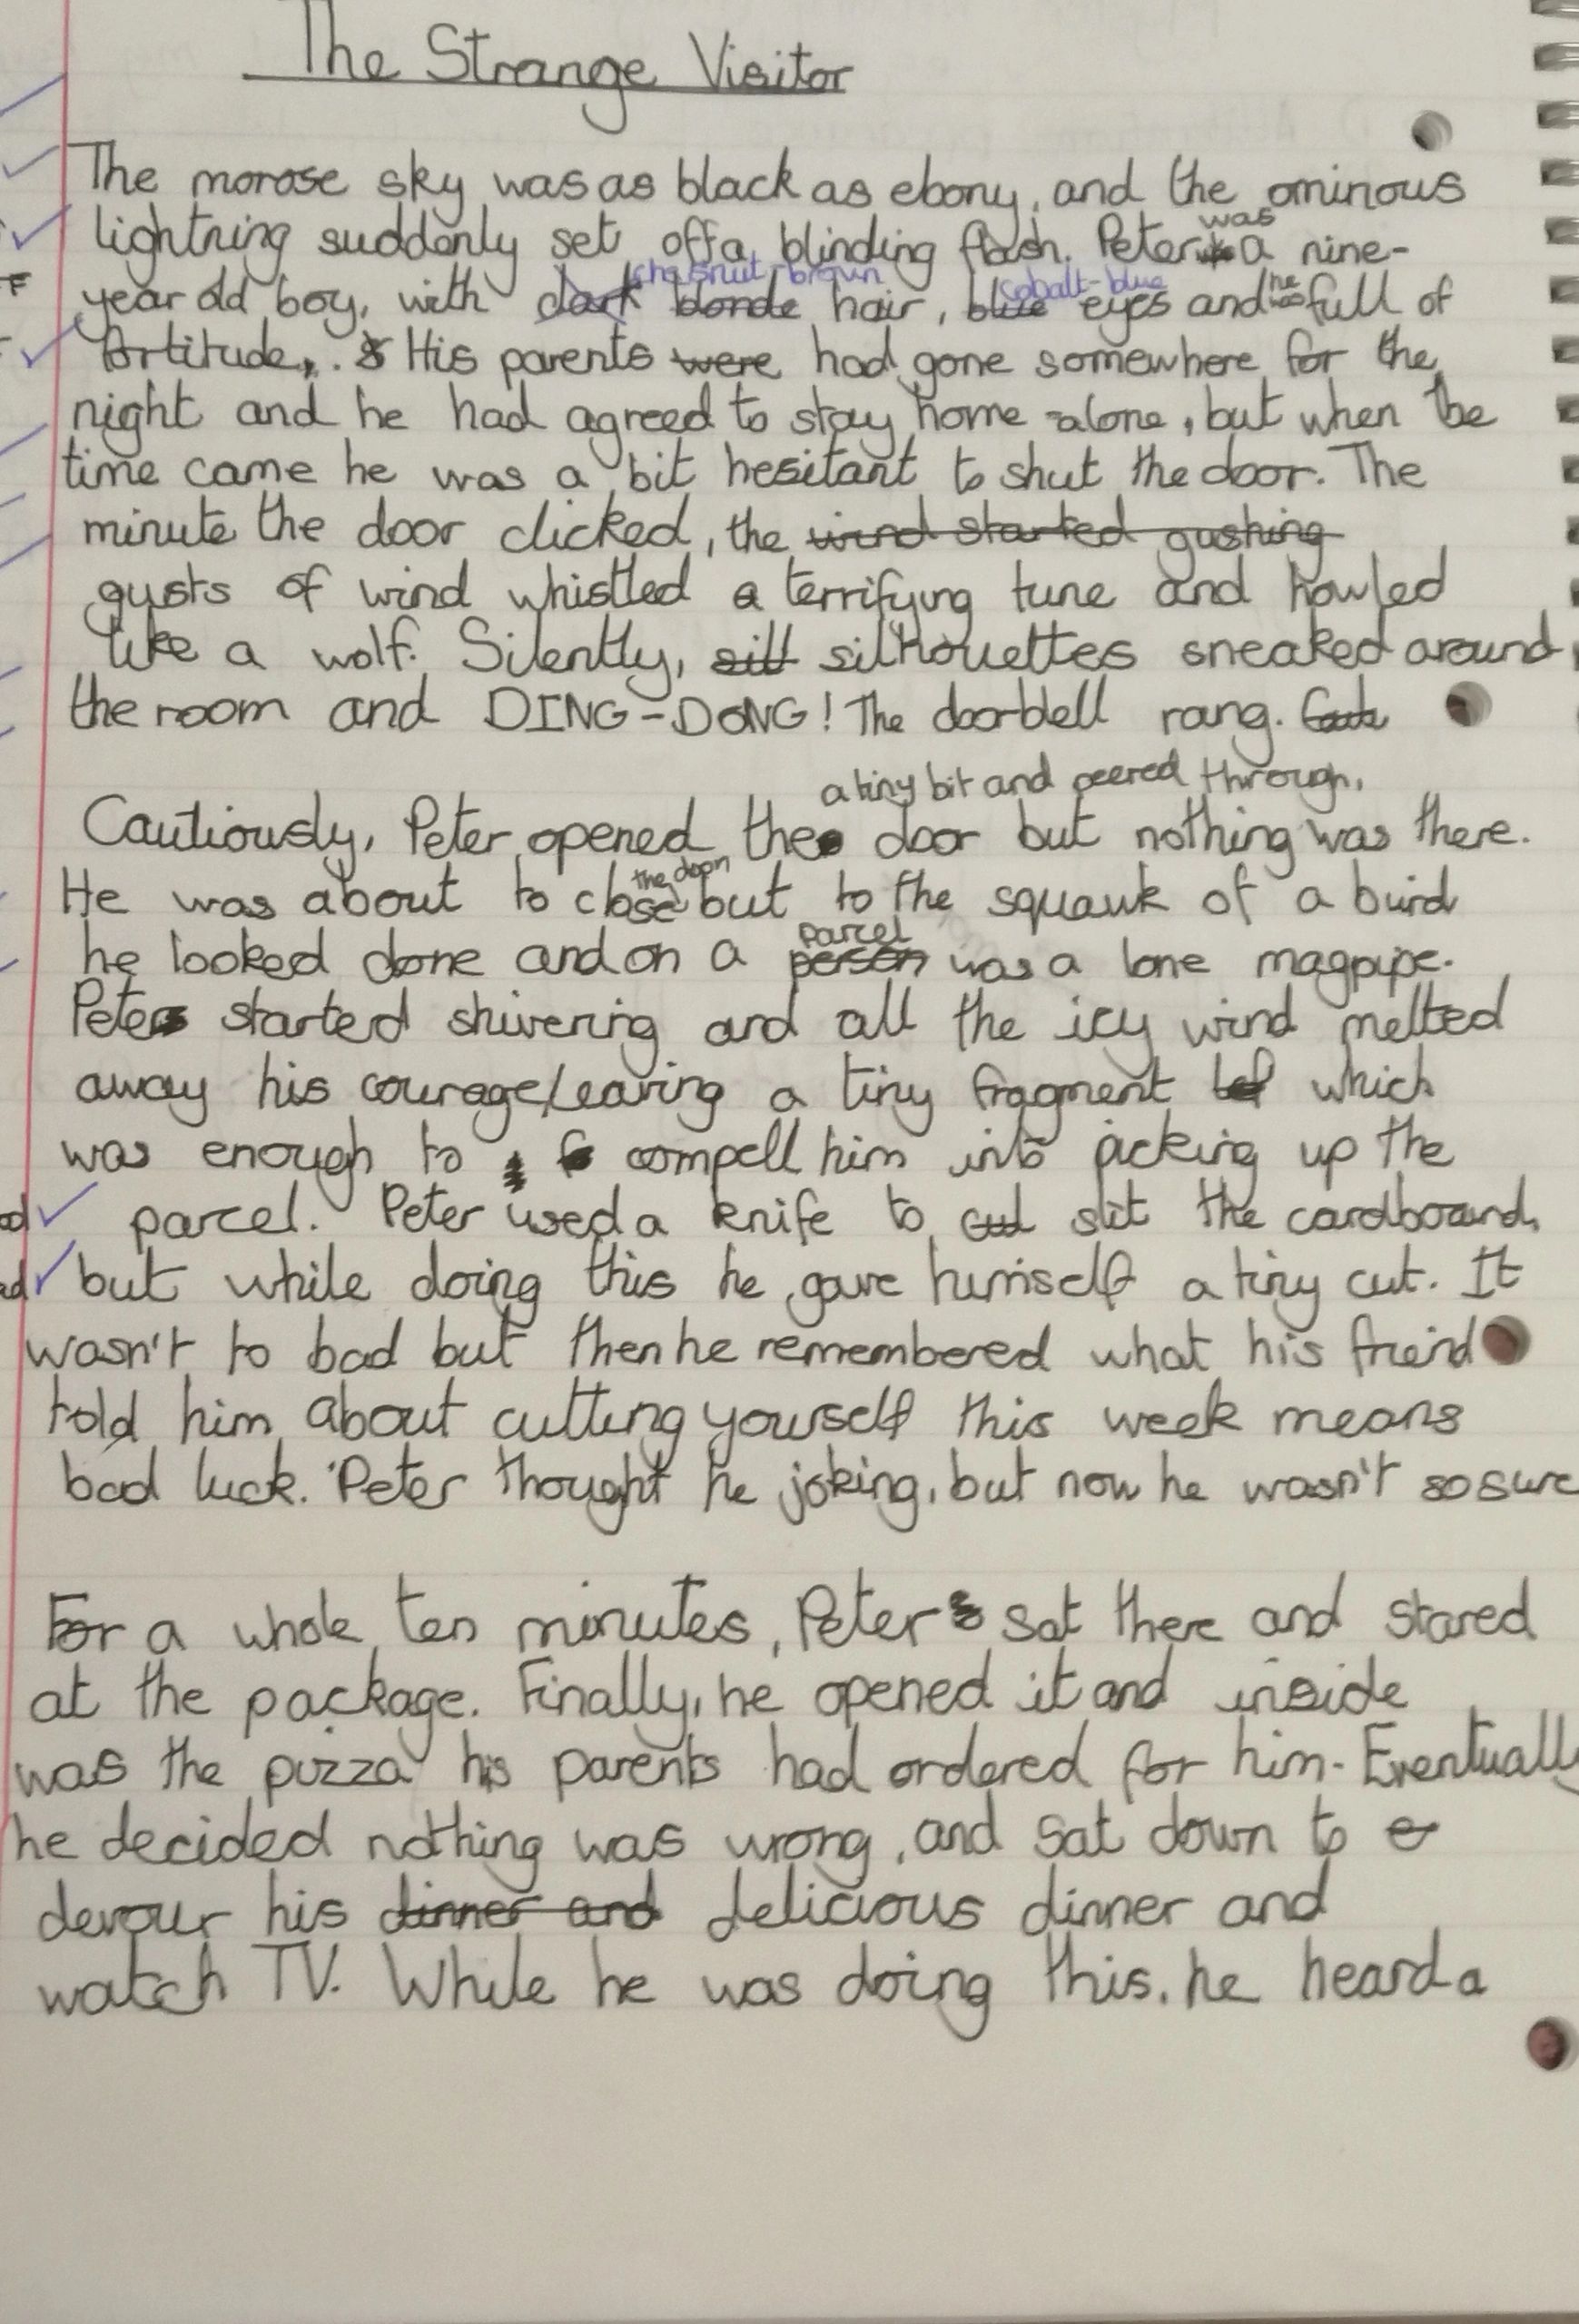 The Strange Visitor
The morose sky was as black as ebony, and the ominous
lightning suddenly set off a blinding flash. Peter was a nine-
year old boy, with chestnut-brown hair, cobalt-blue eyes and he was full of
fortitude. His parents had gone somewhere for the
night and he had agreed to stay home alone, but when the
time came he was a bit hesitant to shut the door. The
minute the door clicked, the wind started gushing
gusts of wind whistled a terrifying tune and howled
like a wolf. Silently, sill silhouettes sneaked around
the room and DING-DONG! The doorbell rang.
a tiny bit and peered through,
Cautiously, Peter opened the door but nothing was there.
He was about to close the door but to the squawk of a burd
he looked done and on a parcel person was a lone magpipe.
Peter started shivering and all the icy wind melted
away his courage/leaving a tiny fragment which
was enough to compell him into picking up the
parcel. Peter used a knife to cut slit the cardboard,
but while doing this he gave himself a tiny cut. It
wasn't to bad but then he remembered what his freind
told him about cutting yourself this week means
bad luck. Peter thought he joking, but now he wasn't so sure
For a whole ten minutes, Peter sat there and stared
at the package. Finally, he opened it and inside
was the pizza his parents had ordered for him. Eventually
he decided nothing was wrong, and sat down to
devour his dinner and delicious dinner and
watch TV. While he was doing this, he heard a